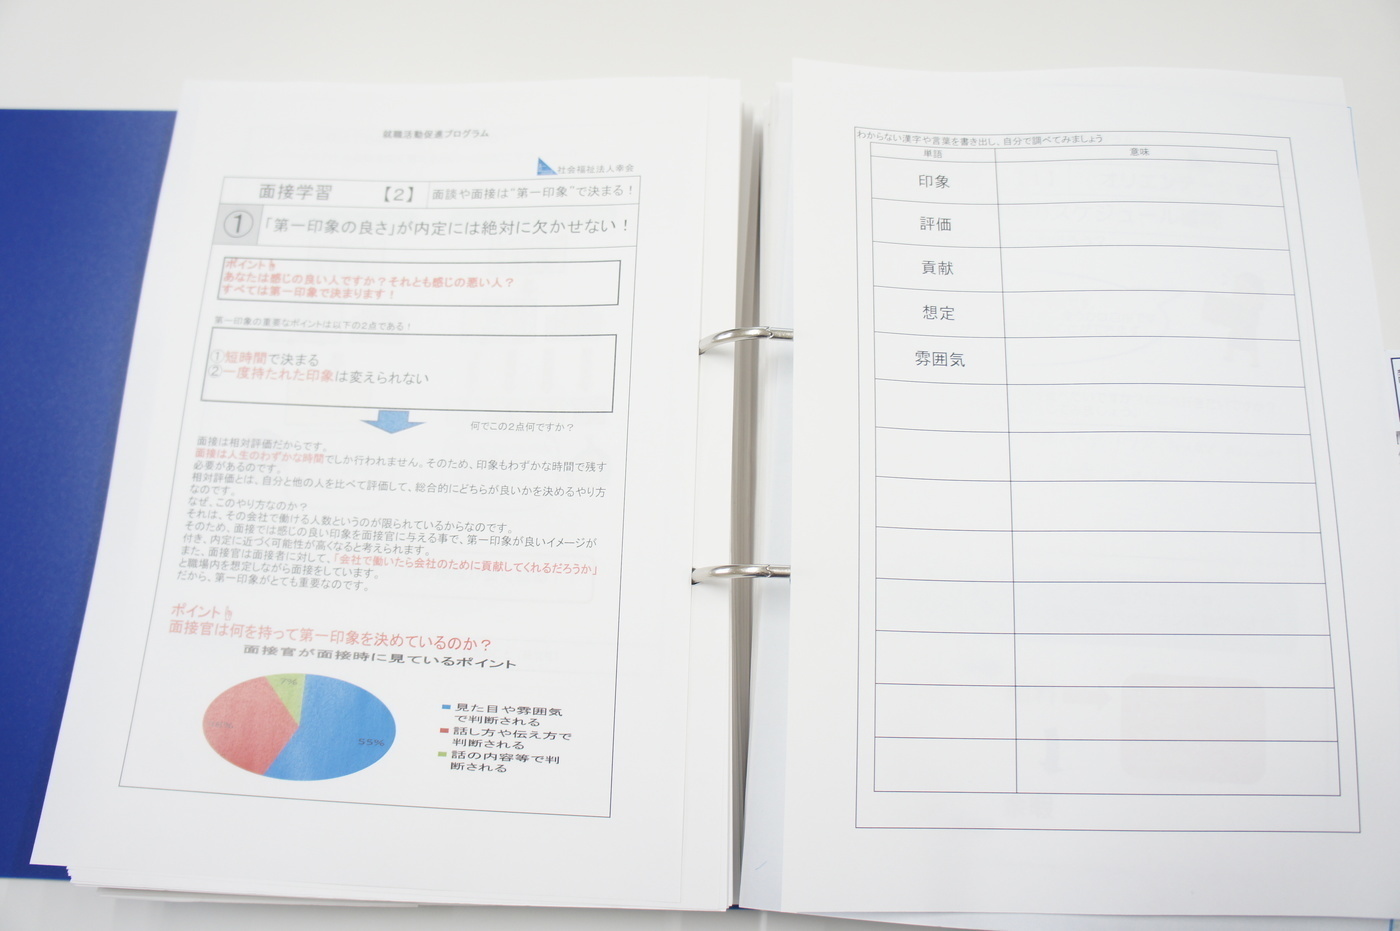 就職活動促進プログラム
社会福祉法人幸会
面接学習 【2】 面談や面接は“第一印象”で決まる！
① 「第一印象の良さ」が内定には絶対に欠かせない！
ポイント
あなたは感じの良い人ですか？それとも感じの悪い人？
すべては第一印象で決まります！
第一印象の重要なポイントは以下の2点である！
①短時間で決まる
②一度持たれた印象は変えられない
何でこの2点何ですか？
面接は相対評価だからです。
面接は人生のわずかな時間でしか行われません。そのため、印象もわずかな時間で残す
必要があるのです。
相対評価とは、自分と他の人を比べて評価して、総合的にどちらが良いかを決めるやり方
なのです。
なぜ、このやり方なのか？
それは、その会社で働ける人数というのが限られているからなのです。
そのため、面接では感じの良い印象を面接官に与える事で、第一印象が良いイメージが
付き、内定に近づく可能性が高くなると考えられます。
また、面接官は面接者に対して、「会社で働いたら会社のために貢献してくれるだろうか」
と職場内を想定しながら面接をしています。
だから、第一印象がとても重要なのです。
ポイント
面接官は何を持って第一印象を決めているのか？
面接官が面接時に見ているポイント
7%
55%
見た目や雰囲気
で判断される
話し方や伝え方で
判断される
話の内容等で判
断される
わからない漢字や言葉を書き出し、自分で調べてみましょう
単語 意味
印象
評価
貢献
想定
雰囲気